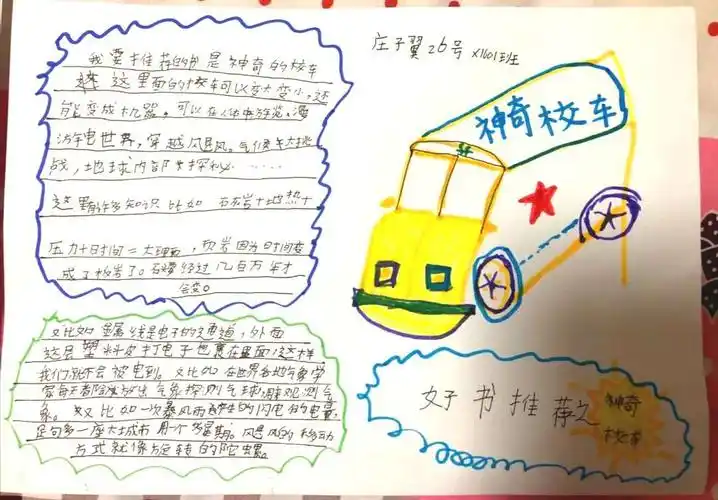 我要推荐的是神奇的校车
这里面的校车可以变大变小,还
能变成机器。可以在人体中游览。漫
游电世界,穿越飓风。气候大挑
战,地球内部大探秘……
这里有许多知识 比如 石灰岩+地热+
压力+时间=大理石,页岩因为时间变
成了板岩了。石 经过几百万年才
会变。
又比如 金属线是电子的通道,外面
这层塑料皮把电子包裹在里面这样
我们就不会被电到。又比如 在世界各地气象学
家每天都 放出气象探测气球 观测气
象。又比如一次暴风雨产生的闪电的电量
足可多一座大城市用一个星期。飓风的移动
方式就像旋转的陀螺。
庄子翼26号 X1601班
神奇校车
好书推荐之
神奇
校车